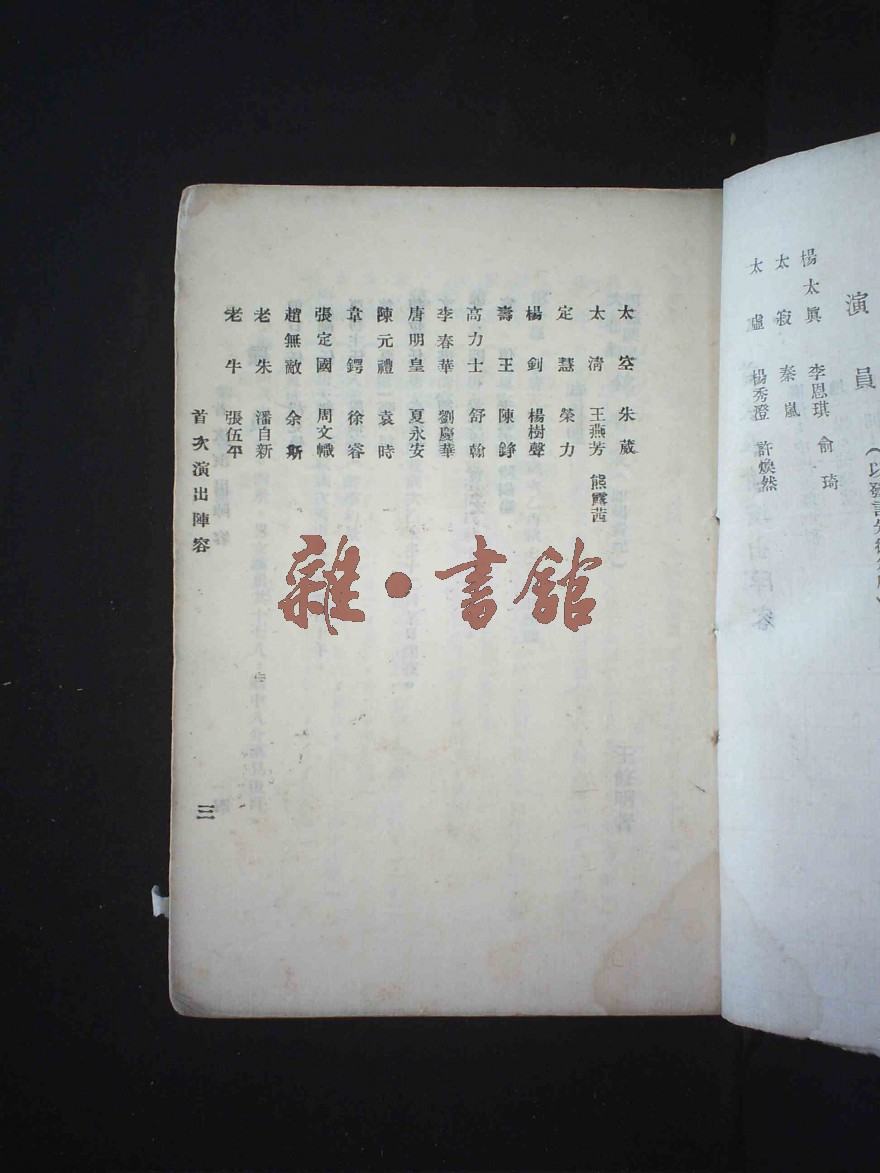 演員
楊太眞 李恩琪 俞琦
太寂 秦嵐
太虛 楊秀澄 許煥然
太空 朱葳
太淸 王燕芳 熊露茜
定慧 榮力
楊釗 楊樹聲
壽王 陳錚
高力士 舒翰
李春華 劉慶華
唐明皇 夏永安
陳元禮 袁時
韋鍔 徐容
張定國 周文幟
趙無敵 余斯
老朱 潘自新
老牛 張伍平
首次演出陣容
三
雜·書館